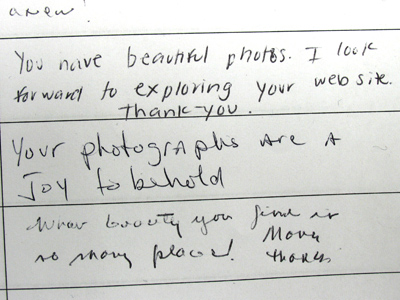 anew!
You have beautiful photos. I look
forward to exploring your web site.
Thank-you.
Your photographs are a
Joy to behold
What beauty you find in
so many places! Many
thanks